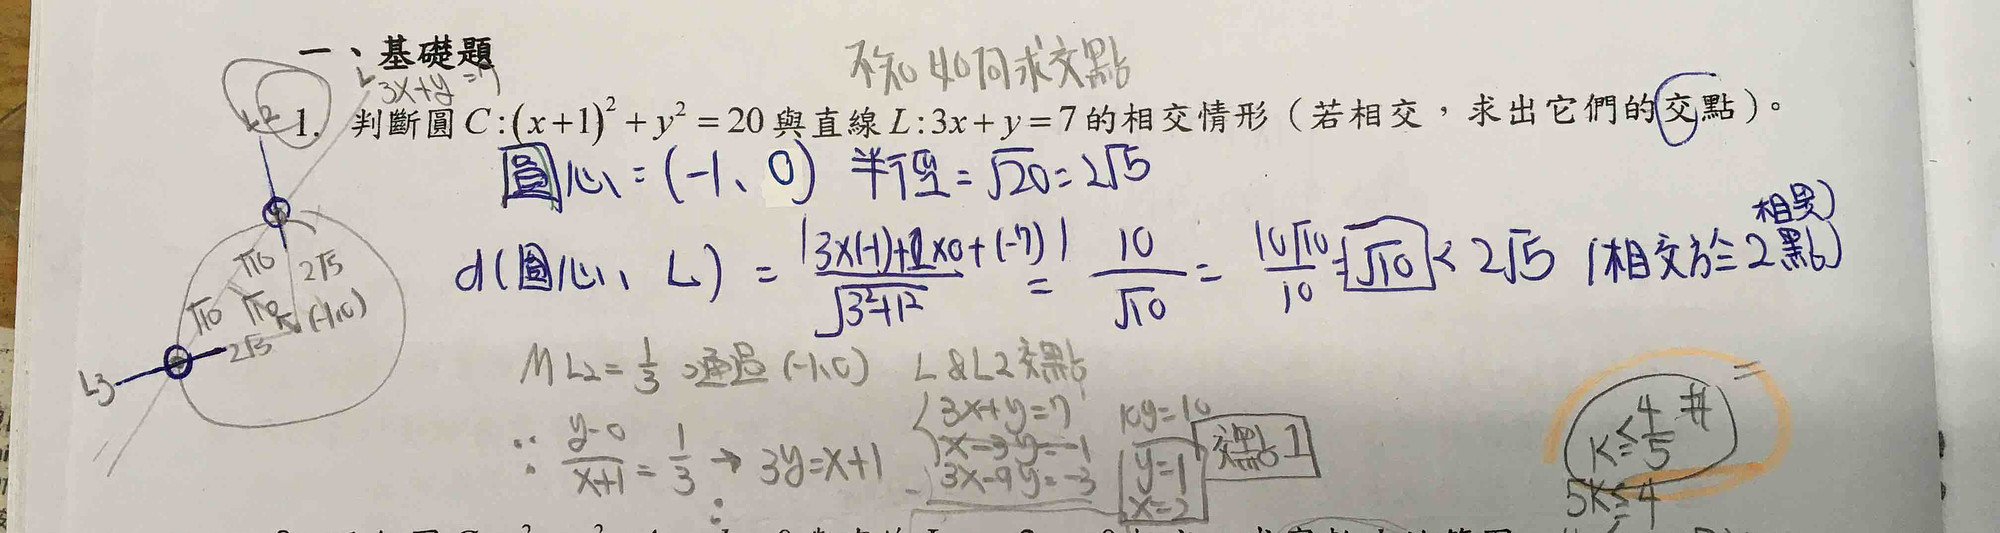 一、基礎題
不知如何求交點
L 3x+y=7
L2
1. 判斷圓C:(x+1)²+y²=20與直線L:3x+y=7的相交情形(若相交,求出它們的交點)。
圓心=(-1、0) 半徑=√20=2√5
d(圓心、L) = |3×(-1)+1×0+(-7)| / √3²+1² = 10/√10 = 10√10/10 = √10 < 2√5 (相交於2點)
相異
√10 2√5
√10 √10 (-1,0)
2√5
L3
mL2=1/3 通過(-1,0) L&L2交點
∵ y-0/x+1 = 1/3 → 3y=x+1
3x+y=7
x-3y=-1
3x-9y=-3
10y=10
y=1
x=2
交點1
k≤4/5 #
5k≤4